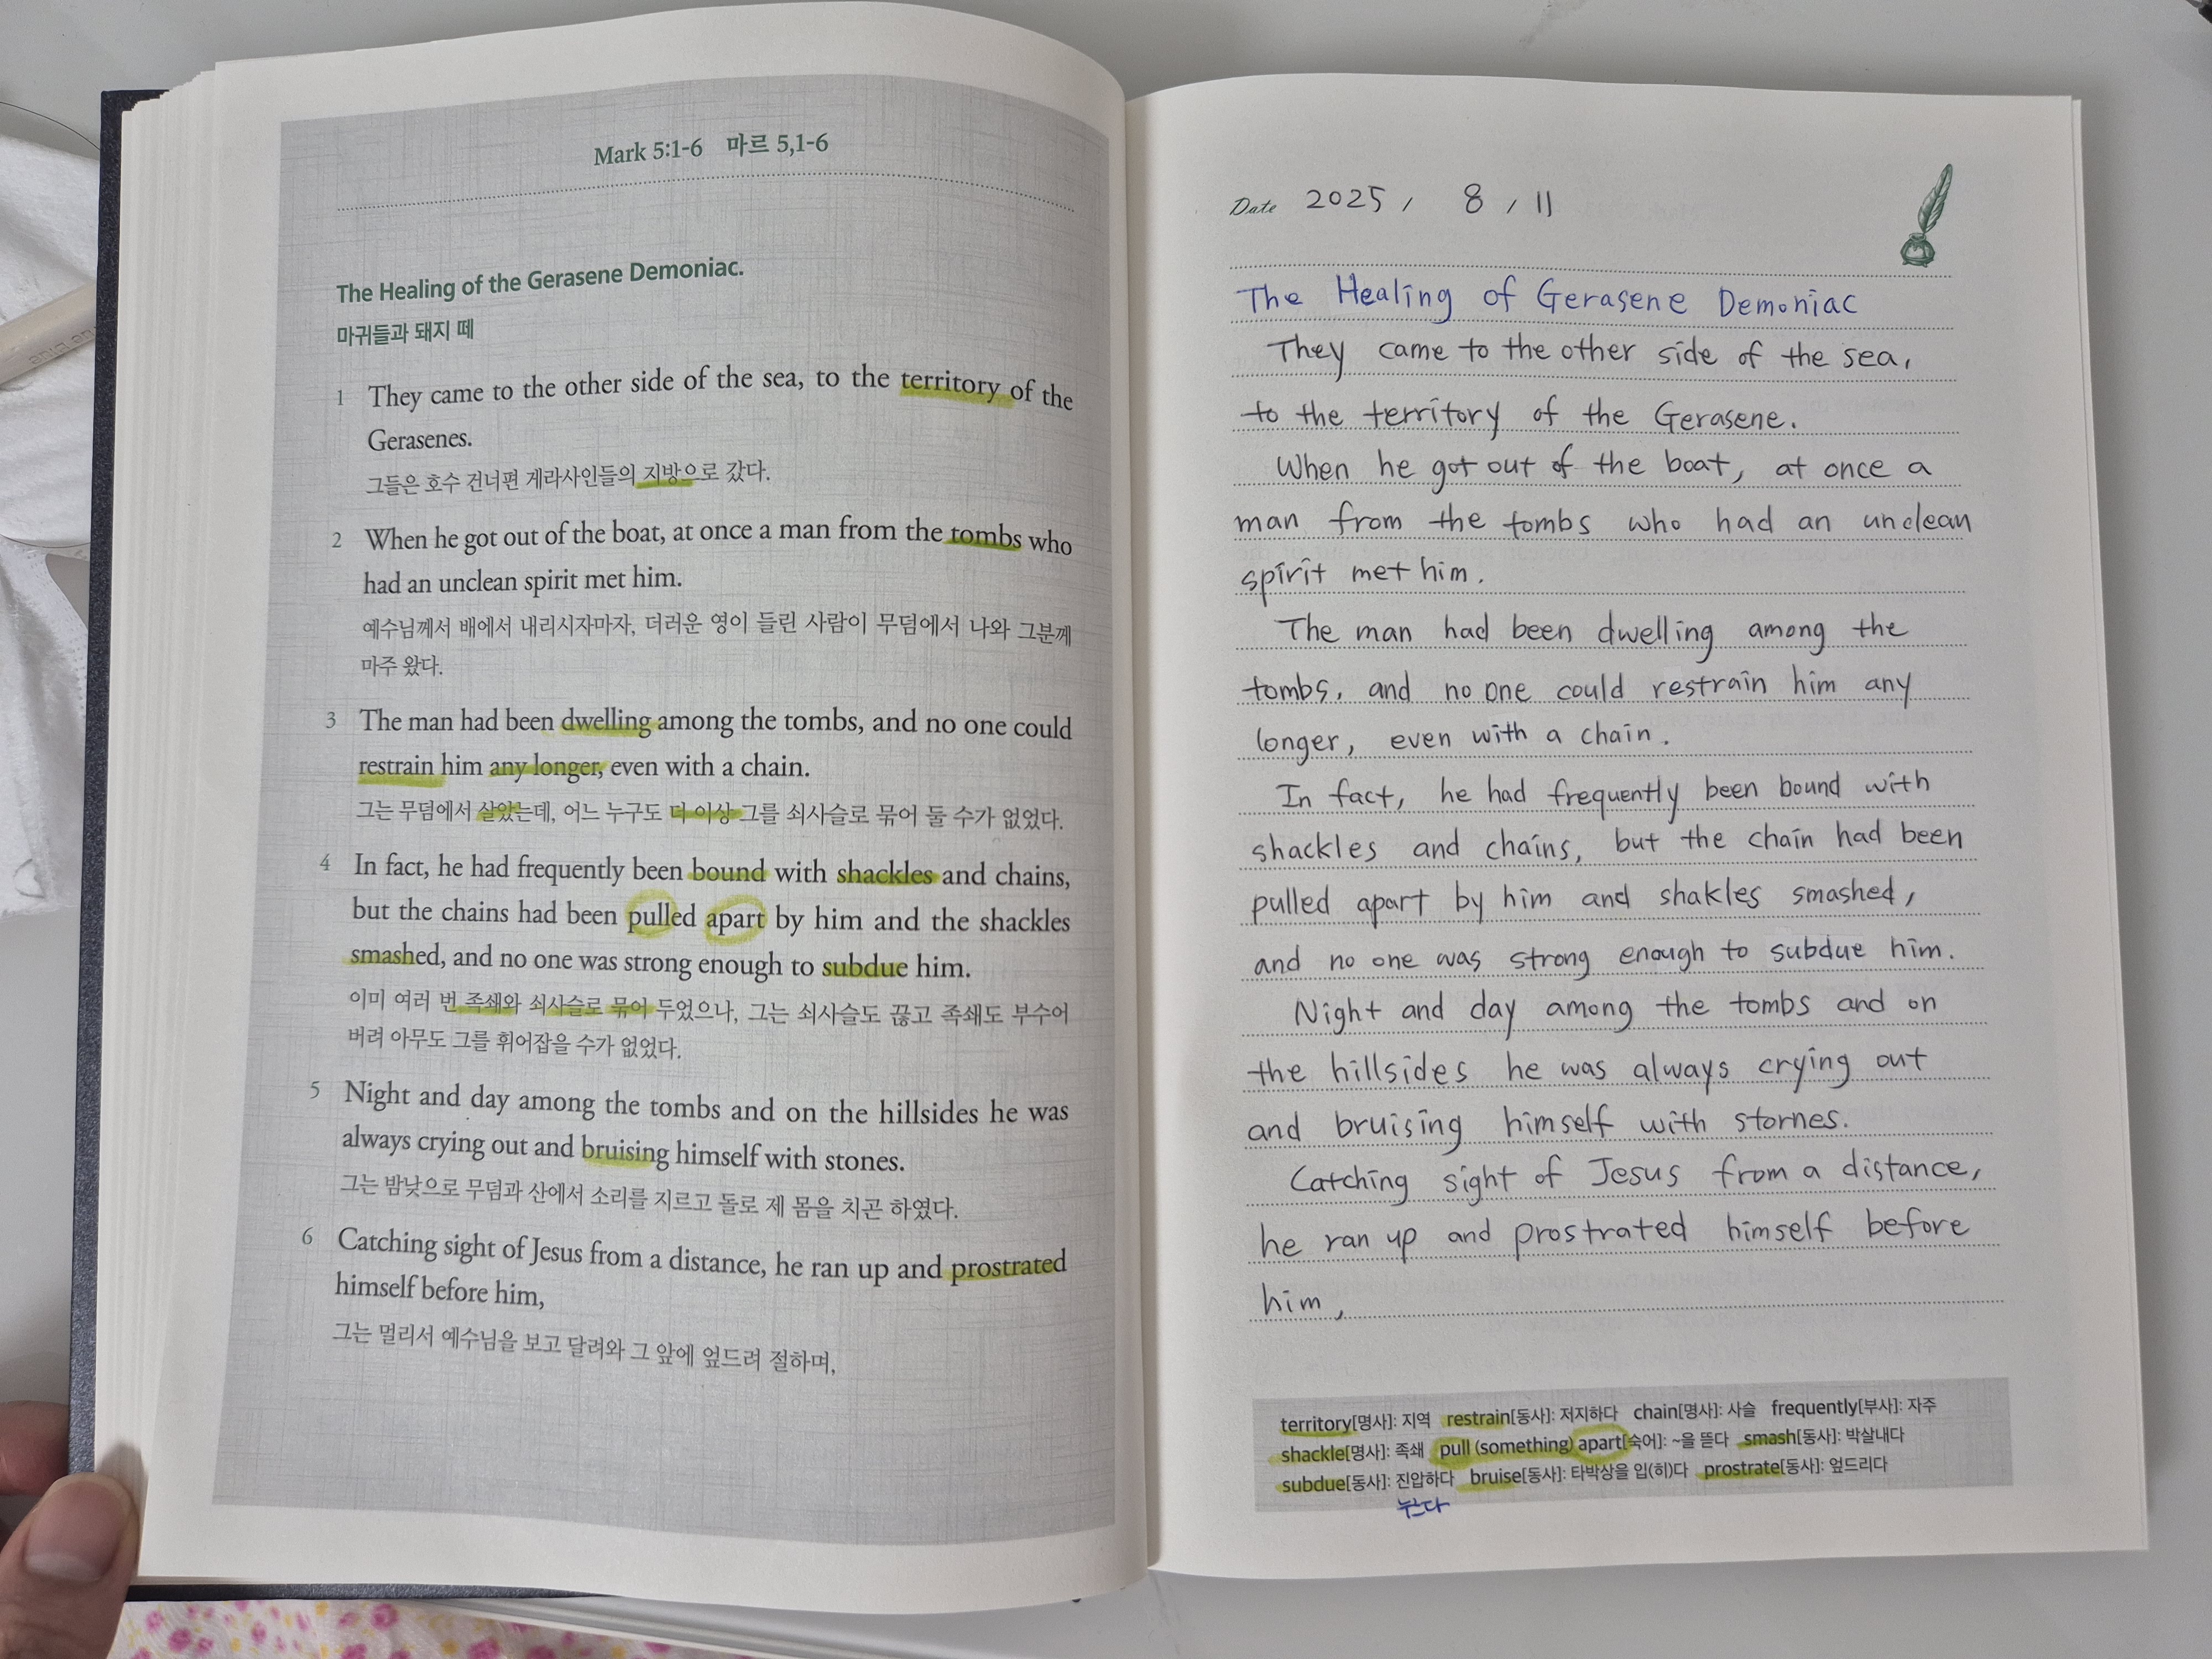 Mark 5:1-6 마르 5,1-6
The Healing of the Gerasene Demoniac.
마귀들과 돼지 떼
1 They came to the other side of the sea, to the territory of the
Gerasenes.
그들은 호수 건너편 게라사인들의 지방으로 갔다.
2 When he got out of the boat, at once a man from the tombs who
had an unclean spirit met him.
예수님께서 배에서 내리시자마자, 더러운 영이 들린 사람이 무덤에서 나와 그분께
마주 왔다.
3 The man had been dwelling among the tombs, and no one could
restrain him any longer, even with a chain.
그는 무덤에서 살았는데, 어느 누구도 더 이상 그를 쇠사슬로 묶어 둘 수가 없었다.
4 In fact, he had frequently been bound with shackles and chains,
but the chains had been pulled apart by him and the shackles
smashed, and no one was strong enough to subdue him.
이미 여러 번 족쇄와 쇠사슬로 묶어 두었으나, 그는 쇠사슬도 끊고 족쇄도 부수어
버려 아무도 그를 휘어잡을 수가 없었다.
5 Night and day among the tombs and on the hillsides he was
always crying out and bruising himself with stones.
그는 밤낮으로 무덤과 산에서 소리를 지르고 돌로 제 몸을 치곤 하였다.
6 Catching sight of Jesus from a distance, he ran up and prostrated
himself before him,
그는 멀리서 예수님을 보고 달려와 그 앞에 엎드려 절하며,
Date 2025 / 8 / 11
The Healing of Gerasene Demoniac
They came to the other side of the sea,
to the territory of the Gerasene.
When he got out of the boat, at once a
man from the tombs who had an unclean
spirit met him.
The man had been dwelling among the
tombs, and no one could restrain him any
longer, even with a chain.
In fact, he had frequently been bound with
shackles and chains, but the chain had been
pulled apart by him and shakles smashed,
and no one was strong enough to subdue him.
Night and day among the tombs and on
the hillsides he was always crying out
and bruising himself with stornes.
Catching sight of Jesus from a distance,
he ran up and prostrated himself before
him,
territory[명사]: 지역 restrain[동사]: 저지하다 chain[명사]: 사슬 frequently[부사]: 자주
shackle[명사]: 족쇄 pull (something) apart[숙어]: ~을 뜯다 smash[동사]: 박살내다
subdue[동사]: 진압하다 bruise[동사]: 타박상을 입(히)다 prostrate[동사]: 엎드리다